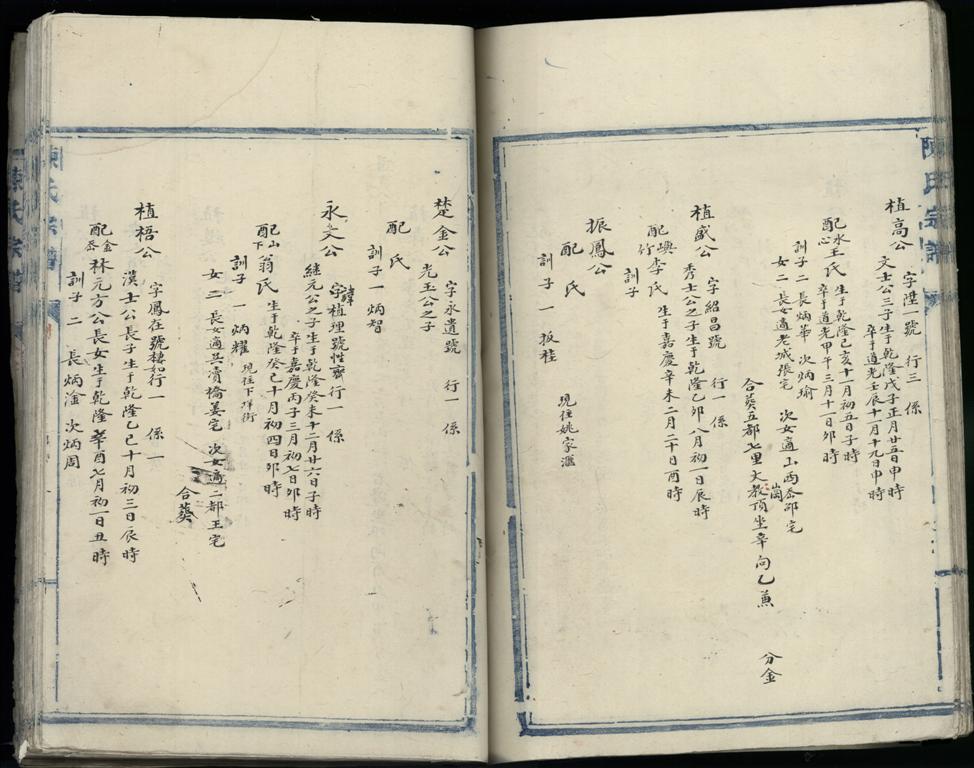 陳氏宗譜
植高公
字陞一號 行三 係
文士公三子生于乾隆戊子正月廿五日申時
卒于道光壬辰十一月十九日申時
配水心王氏 生于乾隆己亥十一月初五日子時
卒于道光甲午三月十一日卯時
訓子二 長炳華 次炳瑜
女二 長女適老城張宅 次女適山兩岙邵宅
合葵五都七里大教頂坐辛向乙兼 分金
植盛公
字紹昌號 行一係
秀士公之子生于乾隆乙卯八月初一日辰時
配嶼竹李氏 生于嘉慶辛未二月二十日酉時
訓子
振鳳公 現住姚家滙
配 氏
訓子 一 扳桂
楚金公
字永遺號 行一 係
光玉公之子
配 氏
訓子 一 炳智
永文公
諱字植理號性齋行一 係
継元公之子生于乾隆癸未十二月廿六日子時
卒于嘉慶丙子三月初七日卯時
配山下翁氏 生于乾隆癸巳十月初四日卯時
訓子 一 炳耀 現住下垟街
女 二 長女適吳濆橋姜宅 次女適二都王宅
合葵
植梧公
字鳳在號棲如行一 係一
漢士公長子生于乾隆乙巳十月初三日辰時
配金岙林元方公長女生于乾隆辛酉七月初一日丑時
訓子 二 長炳淦 次炳周
陳氏宗譜